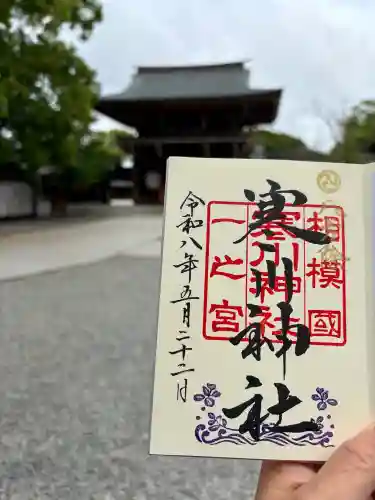 寒川神社
相模國
寒川神社
一之宮
令和八年五月二十二日